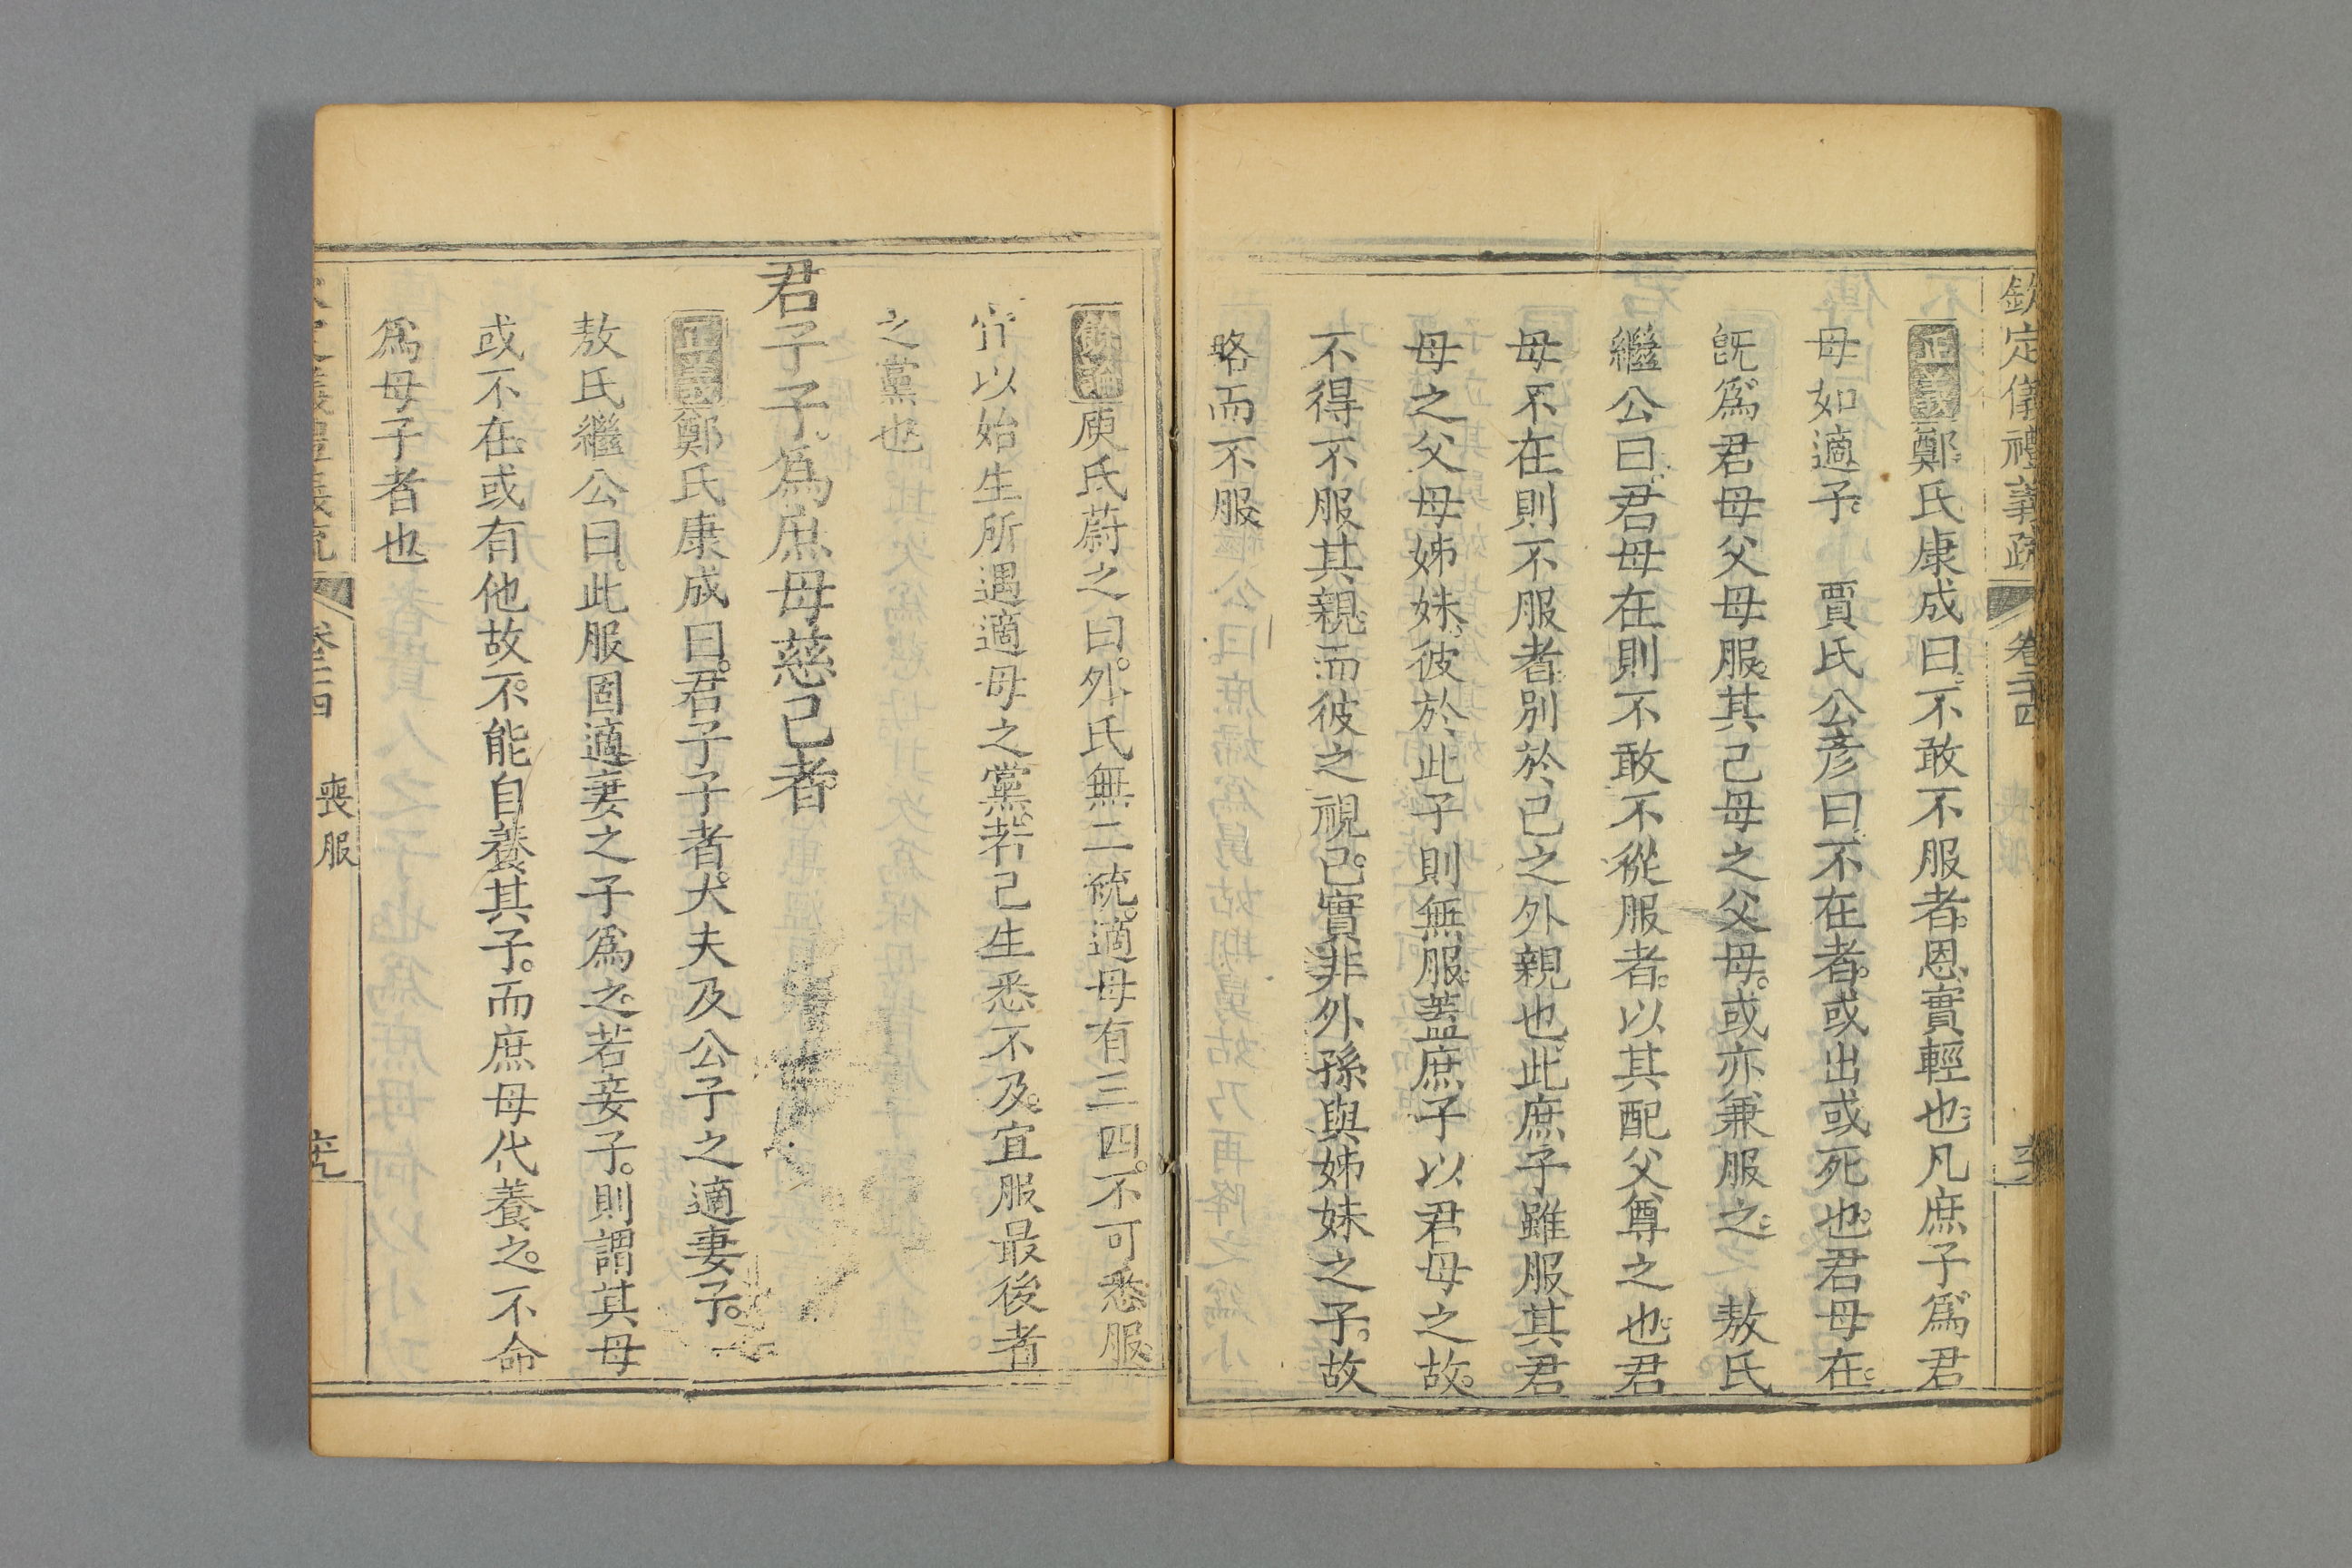 欽定儀禮義疏 卷二十四 喪服
正義鄭氏康成曰不敢不服者恩實輕也凡庶子爲君
母如適子 賈氏公彦曰不在者或出或死也君母在
旣爲君母父母服其己母之父母或亦兼服之 敖氏
繼公曰君母在則不敢不從服者以其配父尊之也君
母不在則不服者別於己之外親也此庶子雖服其君
母之父母姊妹彼於此子則無服蓋庶子以君母之故
不得不服其親而彼之視己實非外孫與姊妹之子故
略而不服
餘論庾氏蔚之曰外氏無二統適母有三四不可悉服
宁以始生所遇適母之黨若己生悉不及宜服最後者
之黨也
君子子爲庶母慈己者
正義鄭氏康成曰君子子者大夫及公子之適妻子
敖氏繼公曰此服固適妻之子爲之若妾子則謂其母
或不在或有他故不能自養其子而庶母代養之不命
爲母子者也
卷二十四 喪服